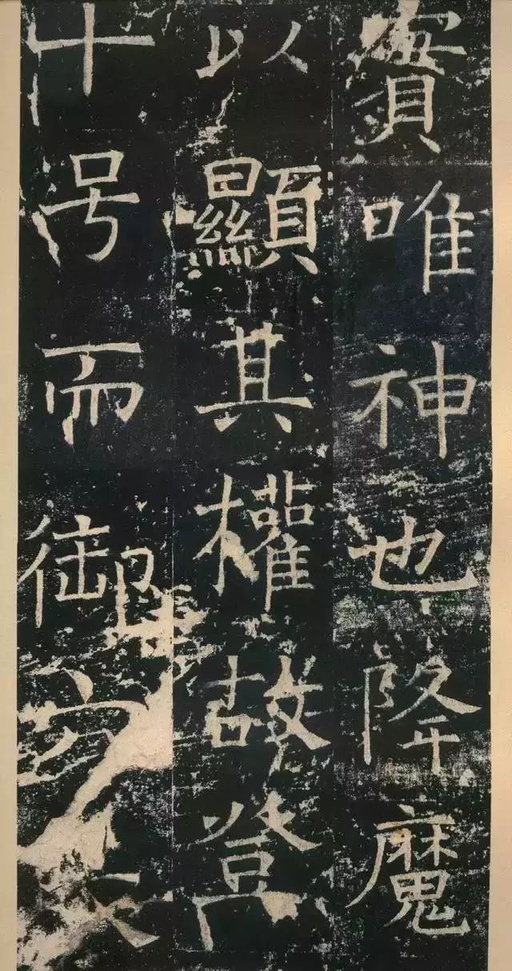 實唯神也降魔
以顯其權故登
十号而御六